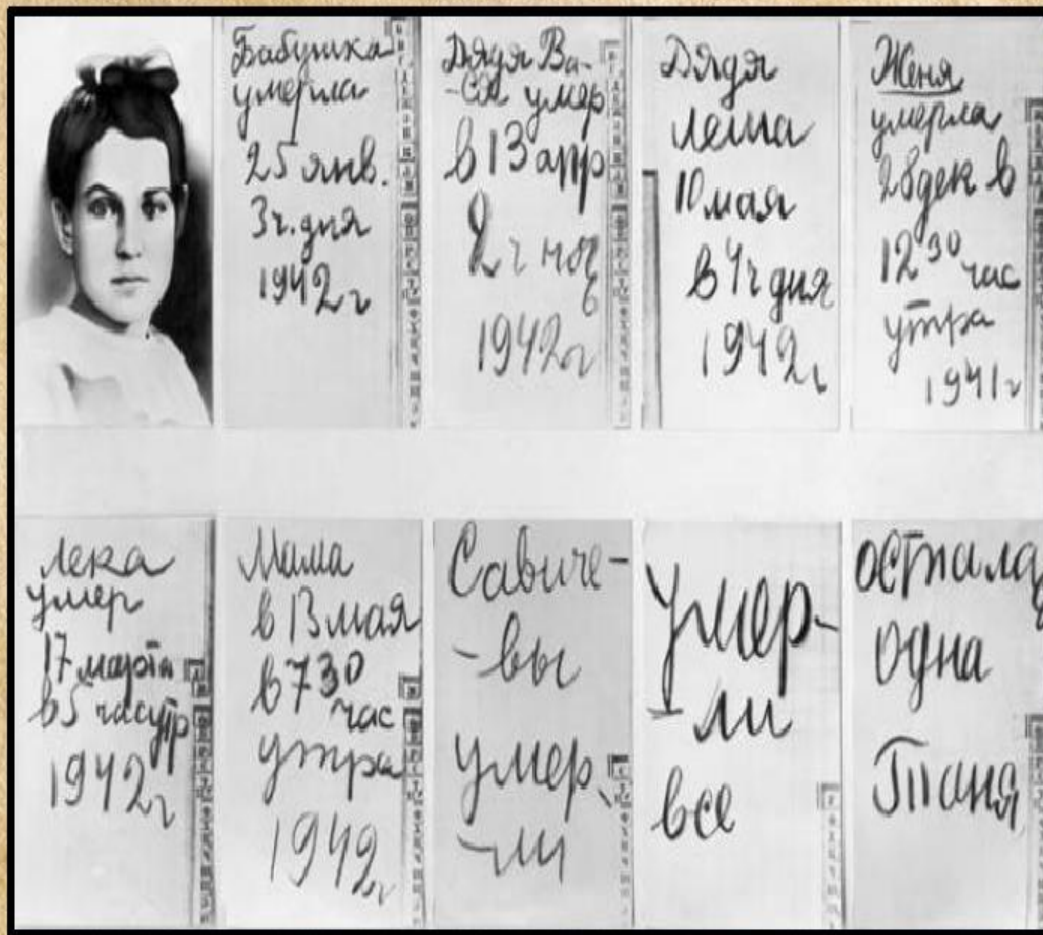 Бабушка
умерла
25 янв.
3ч. дня
1942г
Дядя Ва-
-ся умер
в 13 апр
2ч ноч
1942г
Дядя
Леша
10 мая
в 4ч дня
1942г
Женя
умерла
28 дек в
12 30 час
утра
1941г
Лека
умер
17 марта
в 5 час утр
1942г
Мама
в 13 мая
в 7 30
час
утра
1942г
Савиче-
-вы
умер-
-ли
Умер-
-ли
все
Осталась
одна
Таня